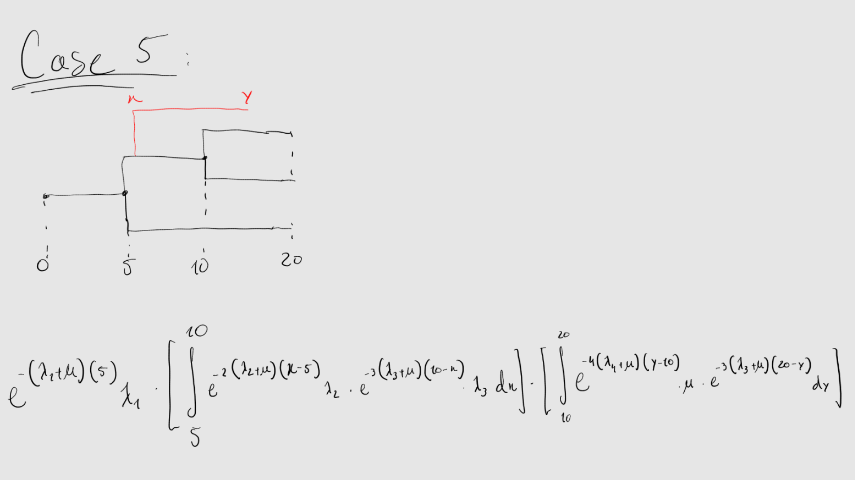 Case 5:
x y
0 5 10 20
e^{-(λ_1+μ)(5)} λ_1 · [∫_5^{10} e^{-2(λ_2+μ)(x-5)} λ_2 · e^{-3(λ_3+μ)(10-x)} · λ_3 dx] · [∫_{10}^{20} e^{-4(λ_4+μ)(y-10)} · μ · e^{-3(λ_3+μ)(20-y)} dy]